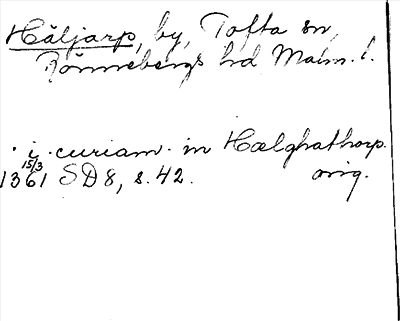 Häljarp, by, Tofta sn,
Rönnebergs hd Malm. l.
· j · curiam · in Hælghathorp.
15/3
1361 SD 8, s. 42. orig.